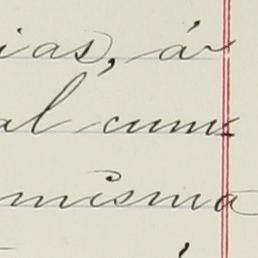 ias, á
al cum-
misma